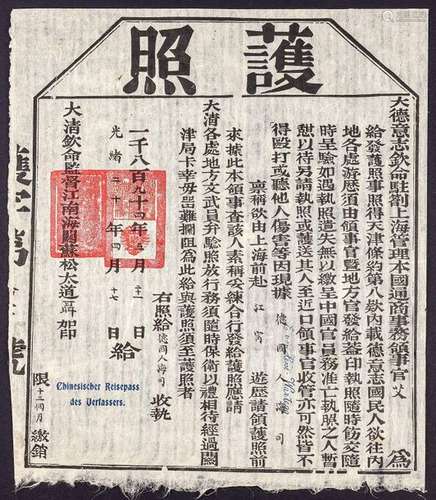 護照
大德意志欽命駐劄上海管理本國通商事務領事官 為
給發護照事照得天津條約第八欵內載德意志國民人欲往內
地各處游歷須由領事官暨地方官發給蓋印執照隨時飭交隨
時呈驗如遇執照遺失無以繳呈中國官員務准亡執照之人暫
憩以待另請執照或護送其人至近口領事官收管亦可然皆不
得毆打或聽他人傷害等因現據 德國人 海司
稟稱欲由上海前赴 江寗 遊歷請領護照前
來據此本領事查該人素稱妥練合行發給護照應請
大清各處地方文武員弁驗照放行務須隨時保衛以禮相待經過關
津局卡幸毋留難攔阻為此給與護照須至護照者
右照給 德國人海司 收執
一千八百九十四年五月二十一日給
光緒二十年四月十七日
大清欽命監督江南海關蘇松太道聶 加印
限十三個月繳銷
Chinesischer Reisepass
des Verfassers.
護字第 號